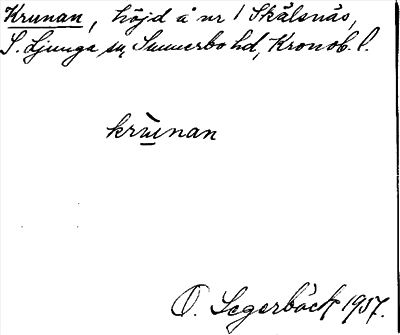 Krunan, höjd å nr 1 Skålsnäs,
S. Ljunga sn, Sunnerbo hd, Kronob. l.
krùnan
O. Segerbäck 1937.